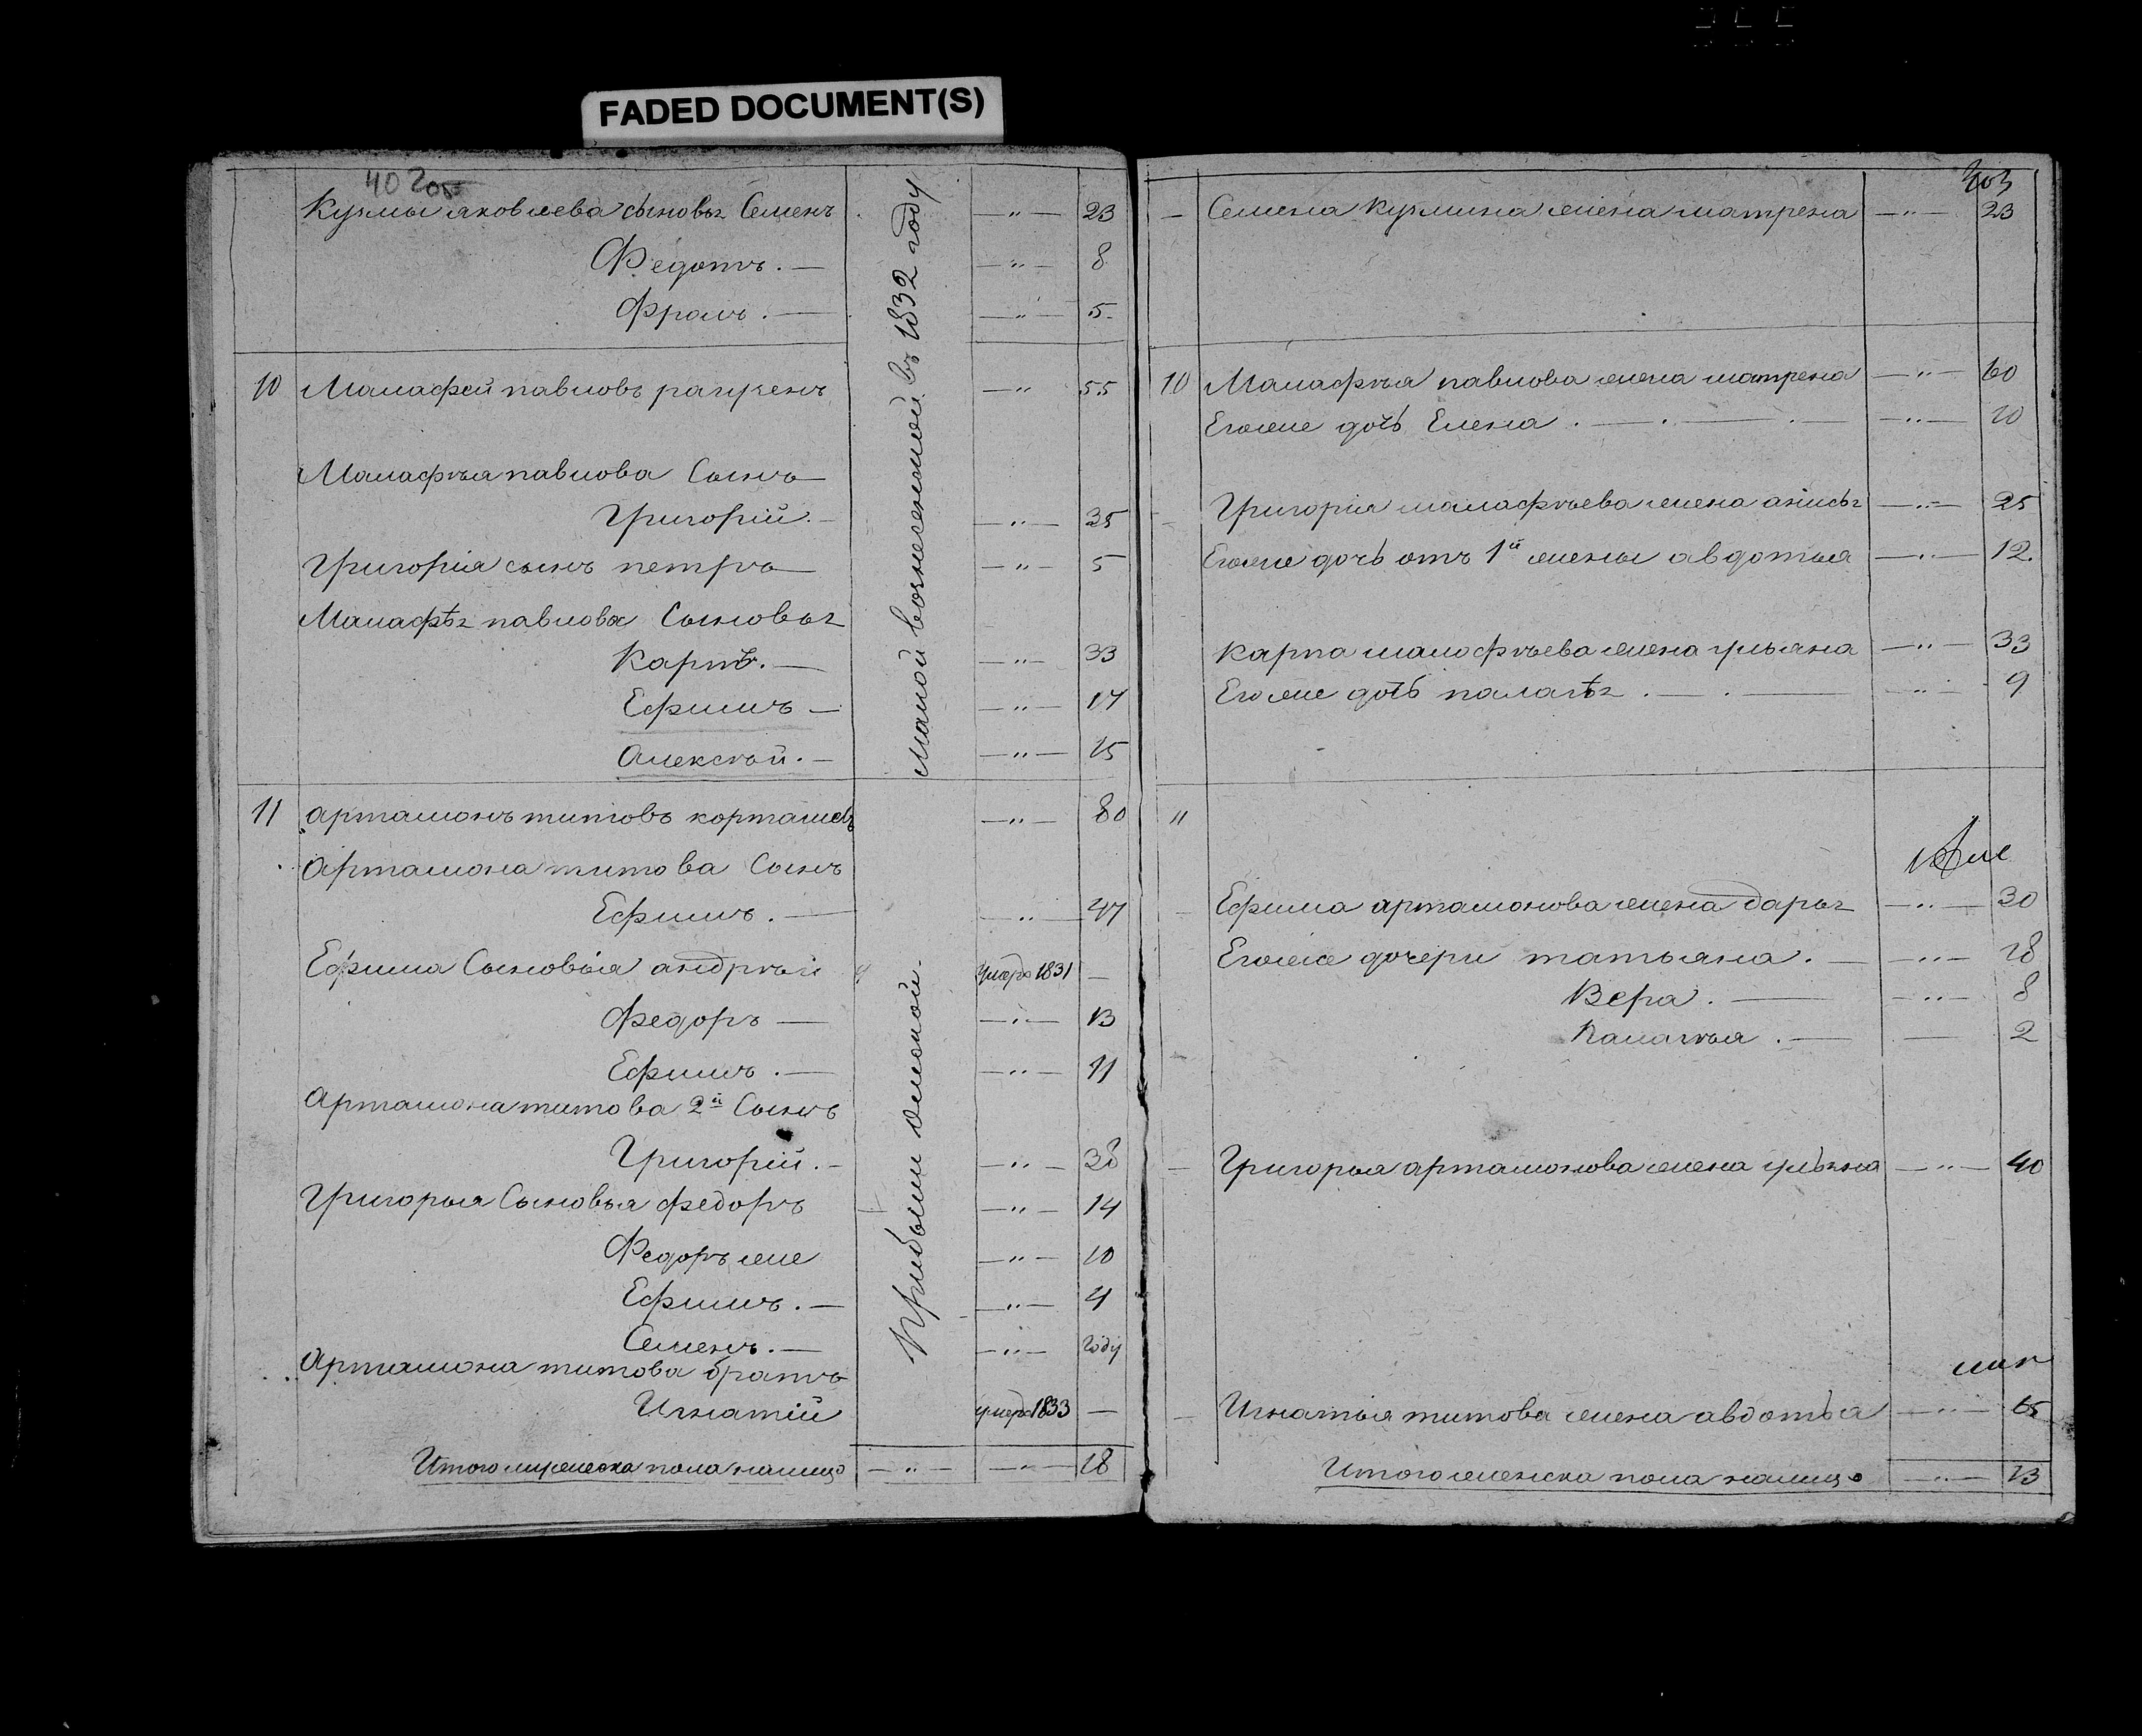 FADED DOCUMENT(S)
402
Кузмы яковлева сыновья Семенъ 23
Федотъ. 8
Фролъ. 5
10 Малафей павловъ 55
Малафѣя павлова Сынъ
Григорій. 35
Григорія сынъ петръ 5
Малафѣя павлова Сыновья
Карпъ. 33
Ефимъ 17
Алексѣй. 15
11 артамонъ титовъ 80
Артамона титова Сынъ
Ефимъ. 47
Ефима Сыновья андрѣй умеръ 1831
Федоръ 13
Ефимъ. 11
Артамона титова 2й Сынъ
Григорій. 38
Григорья Сыновья федоръ 14
Федоръ же 10
Ефимъ. 4
Семенъ. году
Артамона титова братъ
Игнатій умеръ 1833
Итого мужеска пола налицо 18
въ 1832 году
Прибыли
403
Семена Кузмина жена матрена 23
10 Малафѣя павлова жена матрена 60
Егоже дочь Елена. 10
Григорія малафѣева жена 25
Егоже дочь отъ 1й жены авдотья 12.
Карпа малофѣева жена ульяна 33
Егоже дочь 9
11
Ефима артамонова жена дарья 30
Егоже дочери татьяна. 18
Вера. 8
Палагѣя. 2
Григорья артамонова жена 40
Игнатья титова жена авдотья 65
Итого женска пола налицо 13